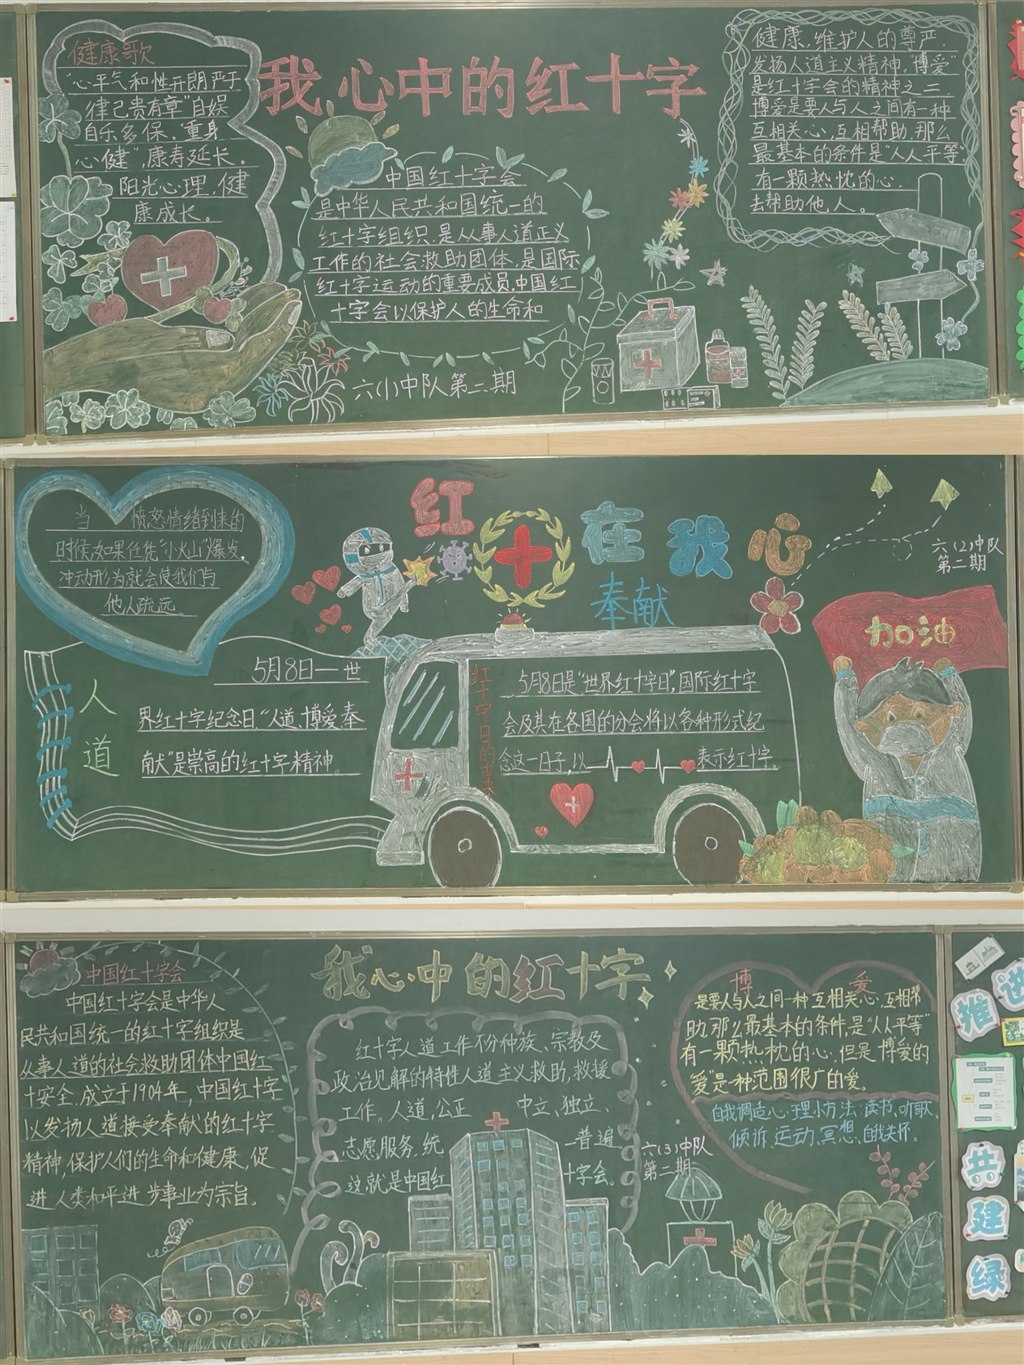 健康歌
"心平气和性开朗严于
律己贵有章"自娱
自乐多保、重身
心健",康寿延长。
阳光心理,健
康成长。
我心中的红十字
中国红十字会
是中华人民共和国统一的
红十字组织,是从事人道正义
工作的社会救助团体,是国际
红十字运动的重要成员,中国红
十字会以保护人的生命和
六(1)中队第二期
健康,维护人的尊严,
发扬人道主义精神,"博爱"
是红十字会的精神之二,
博爱是要人与人之间有一种
互相关心,互相帮助,那么
最基本的条件是"人人平等"
有一颗热忱的心,
去帮助他人。
当 愤怒情绪到来的
时候,如果任凭"小火山"爆发,
冲动形为就会使我们与
他人疏远。
红 在我心
奉献
六(2)中队
第二期
加油
人道
5月8日——世
界红十字纪念日,"人道、博爱、奉
献"是崇高的红十字精神。
红十字日的由来
5月8日是"世界红十字日",国际红十字
会及其在各国的分会将以各种形式纪
念这一日子,以 表示红十字。
我心中的红十字
中国红十字会
中国红十字会是中华人
民共和国统一的红十字组织是
从事人道的社会救助团体中国红
十安全,成立于1904年,中国红十字
以发扬人道接受奉献的红十字
精神,保护人们的生命和健康,促
进人类和平进步事业为宗旨。
红十字人道工作不份种族、宗教及
政治见解的特性人道主义救助,救援
工作。人道、公正 中立、独立、
志愿服务、统 一普遍
这就是中国红 十字会。
六(3)中队
第二期
博 爱
是要人与人之间一种互相关心,互相帮
助,那么最基本的条件,是"人人平等"
有一颗热忱的心,但是博爱的
"爱"是一种范围很广的爱。
自我调造心理小方法:读书、听歌、
倾诉、运动、冥想、自我关怀。
推进
共建绿